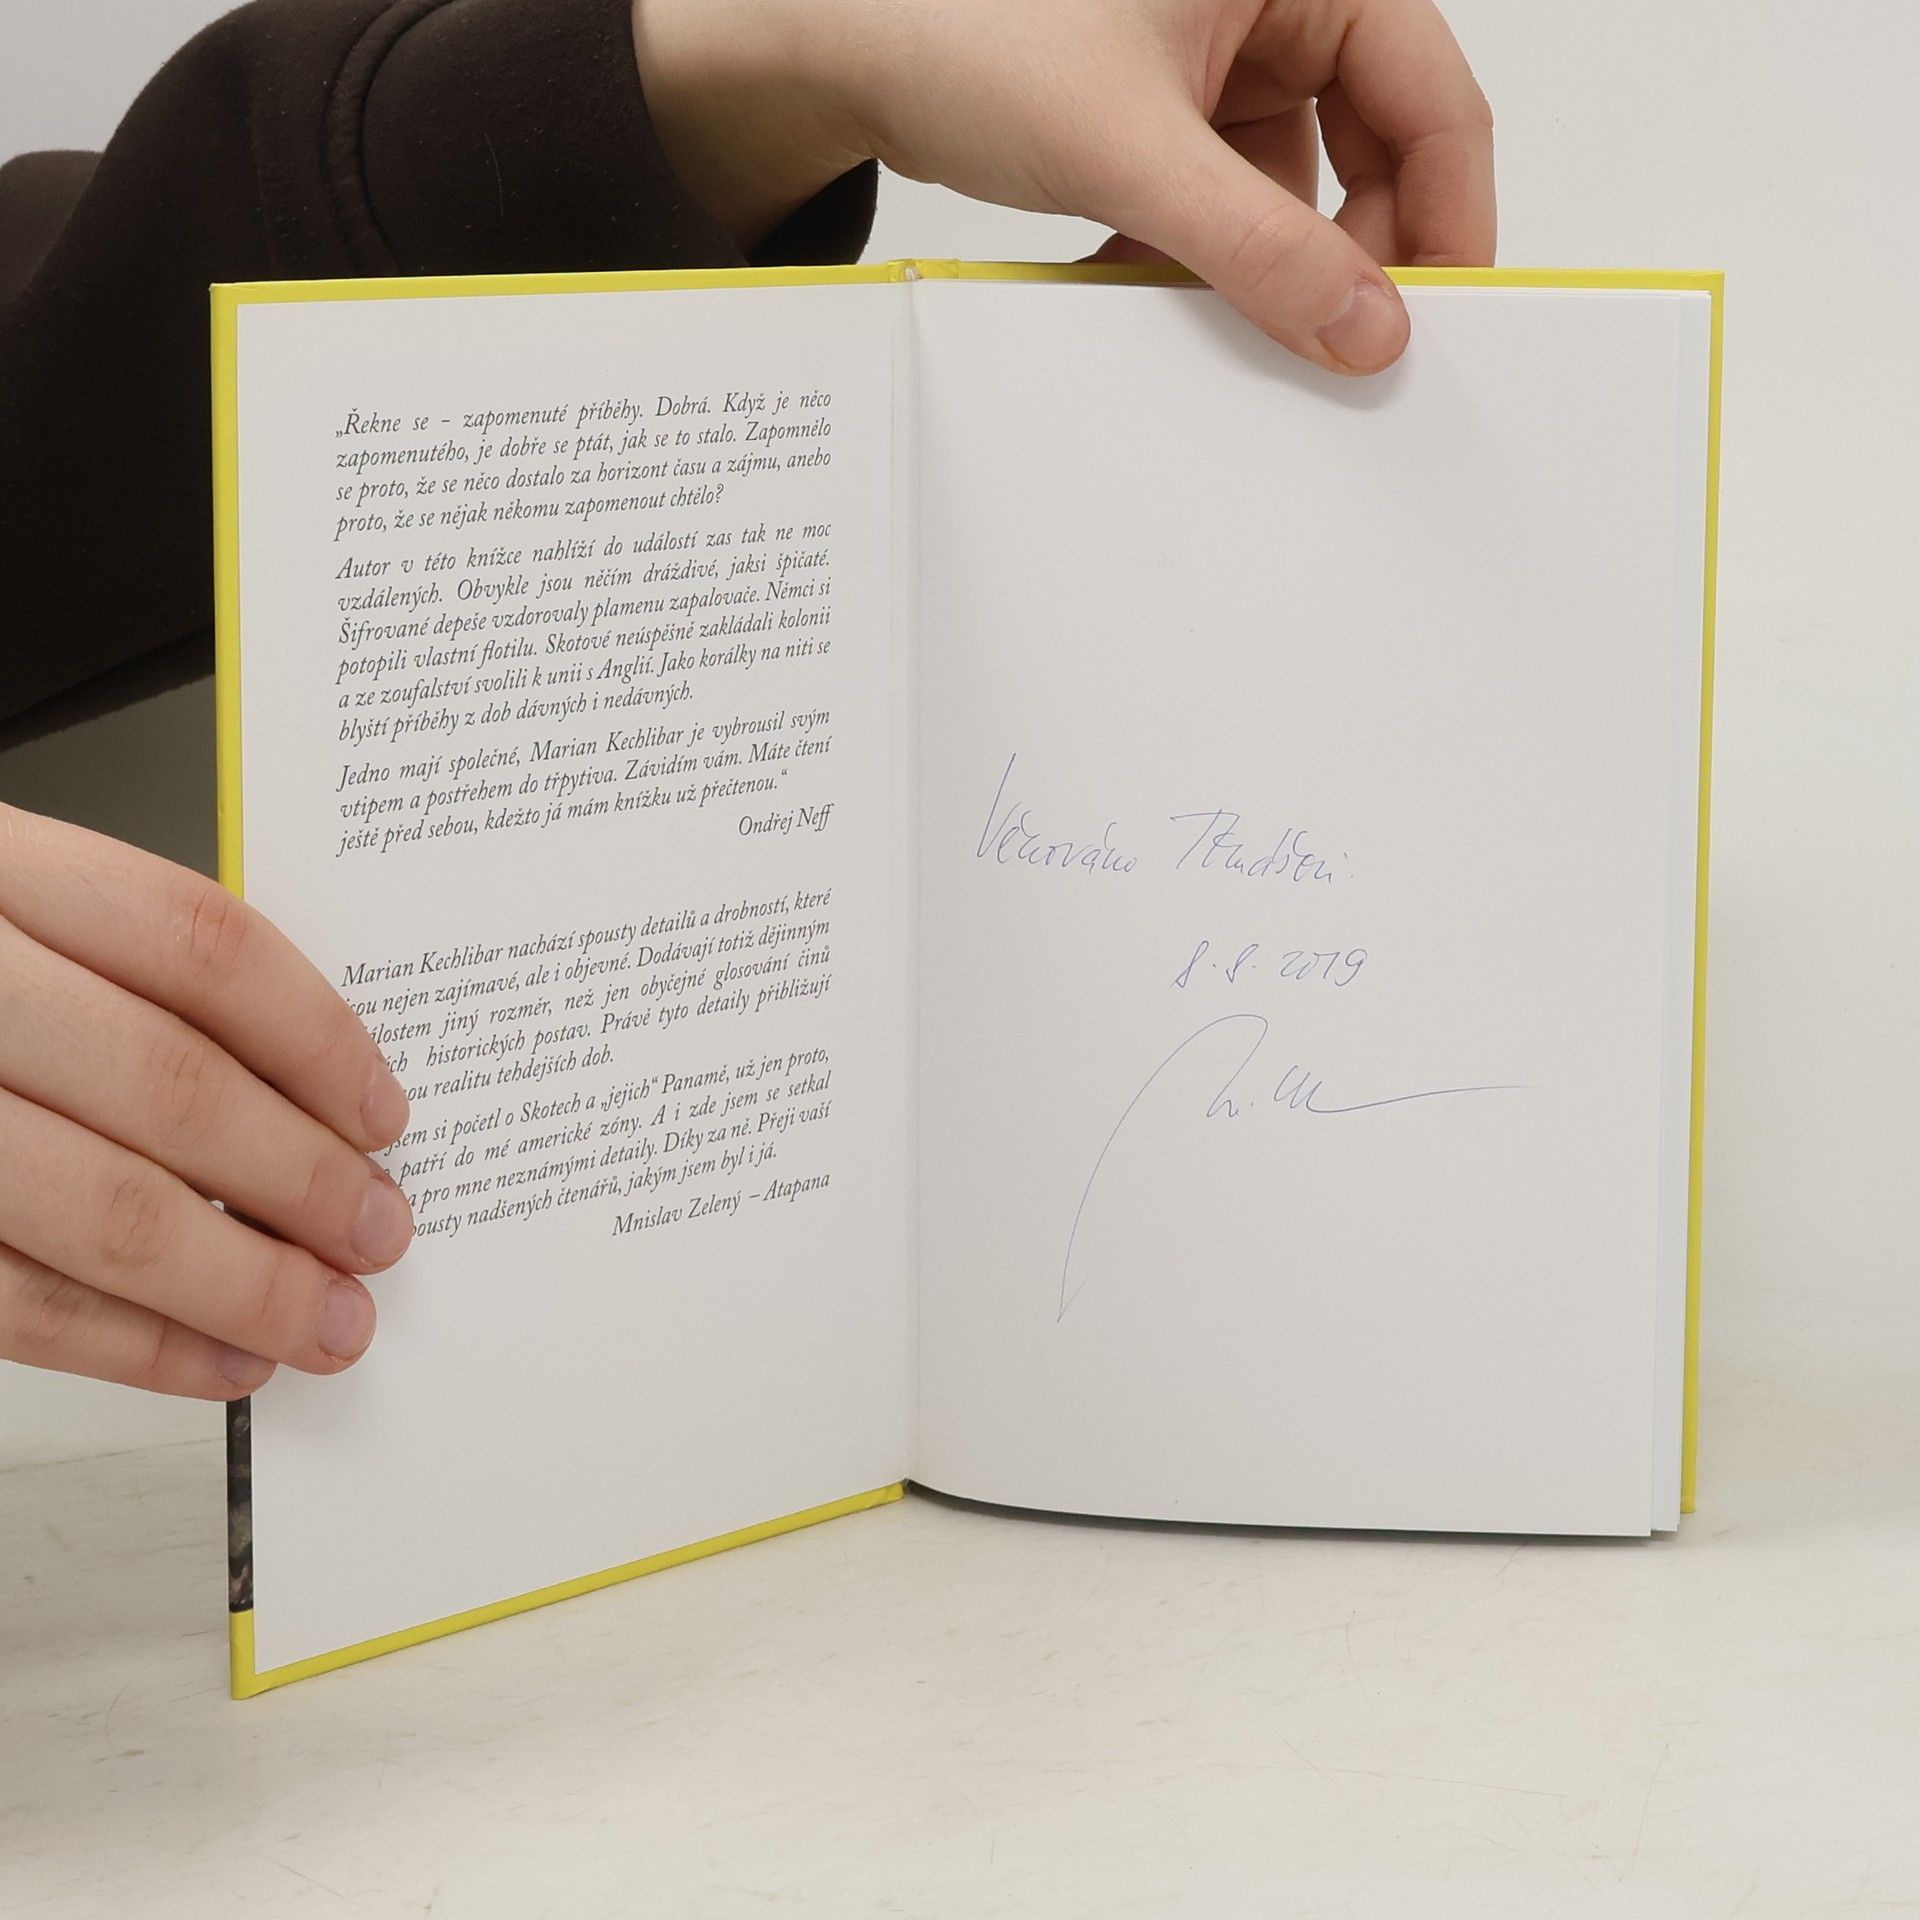 „Řekne se – zapomenuté příběhy. Dobrá. Když je něco
zapomenutého, je dobře se ptát, jak se to stalo. Zapomnělo
se proto, že se něco dostalo za horizont času a zájmu, anebo
proto, že se nějak někomu zapomenout chtělo?
Autor v této knížce nahlíží do událostí zas tak ne moc
vzdálených. Obvykle jsou něčím dráždivé, jaksi špičaté.
Šifrované depeše vzdorovaly plamenu zapalovače. Němci si
potopili vlastní flotilu. Skotové neúspěšně zakládali kolonii
a ze zoufalství svolili k unii s Anglií. Jako korálky na niti se
blyští příběhy z dob dávných i nedávných.
Jedno mají společné, Marian Kechlibar je vybrousil svým
vtipem a postřehem do třpytiva. Závidím vám. Máte čtení
ještě před sebou, kdežto já mám knížku už přečtenou.“
Ondřej Neff
Marian Kechlibar nachází spousty detailů a drobností, které
jsou nejen zajímavé, ale i objevné. Dodávají totiž dějinným
álostem jiný rozměr, než jen obyčejné glosování činů
ch historických postav. Právě tyto detaily přibližují
ou realitu tehdejších dob.
jsem si početl o Skotech a „jejich“ Panamě, už jen proto,
patří do mé americké zóny. A i zde jsem se setkal
a pro mne neznámými detaily. Díky za ně. Přeji vaší
pousty nadšených čtenářů, jakým jsem byl i já.
Mnislav Zelený – Atapana
Věnováno Tomášovi.
8. 8. 2019